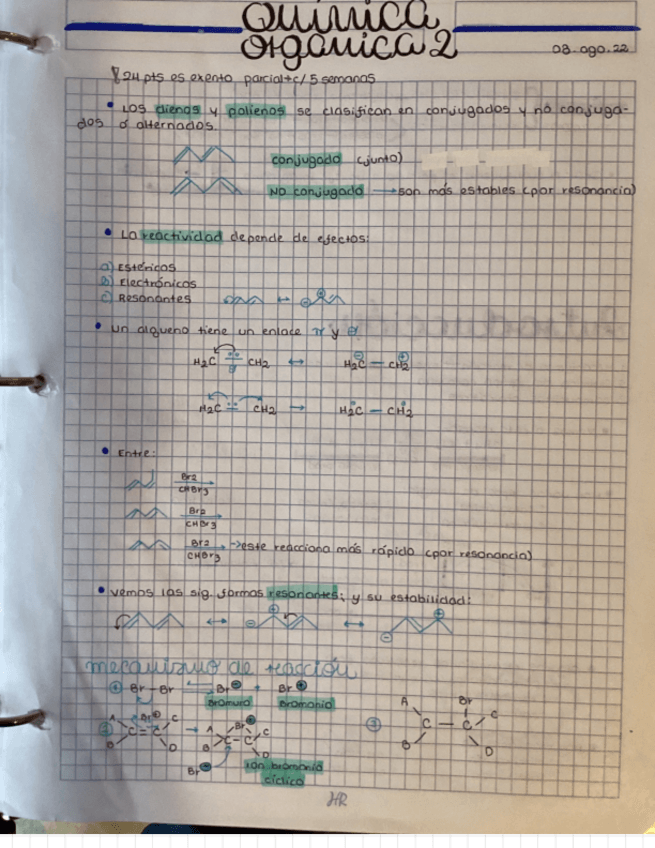 Química
orgánica 2
08.ago.22
24 pts es exento parcial+c/5 semanas
• Los dienos y polienos se clasifican en conjugados y no conjuga-
dos ó alternados.
conjugado (junto)
NO conjugado → son más estables (por resonancia)
• La reactividad depende de efectos:
a) Estéricos
b) Electrónicos
c) Resonantes ↔
• un alqueno tiene un enlace π y
H2C CH2 ↔ H2C — CH2
H2C CH2 → H2C — CH2
• Entre:
Br2
CHBr3
Br2
CHBr3
Br2 → este reacciona más rápido (por resonancia)
CHBr3
• vemos las sig. formas resonantes; y su estabilidad:
↔ ↔
mecanizmo de reacción
① Br — Br Br⊖ + Br⊕
Bromuro Bromonio
② A Br⊕ C → A Br⊕ C ③ A Br C
C = C C — C C — C
B D B D B D
Br⊖ ion bromonio
cíclico
HR